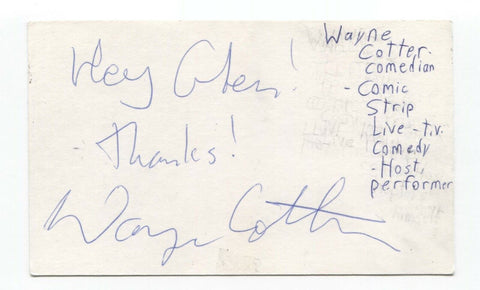 Hey Glen!
Thanks!
Wayne Cotter
Wayne
Cotter-
comedian
- Comic
Strip
Live - t.v.
Comedy
- Host,
performer